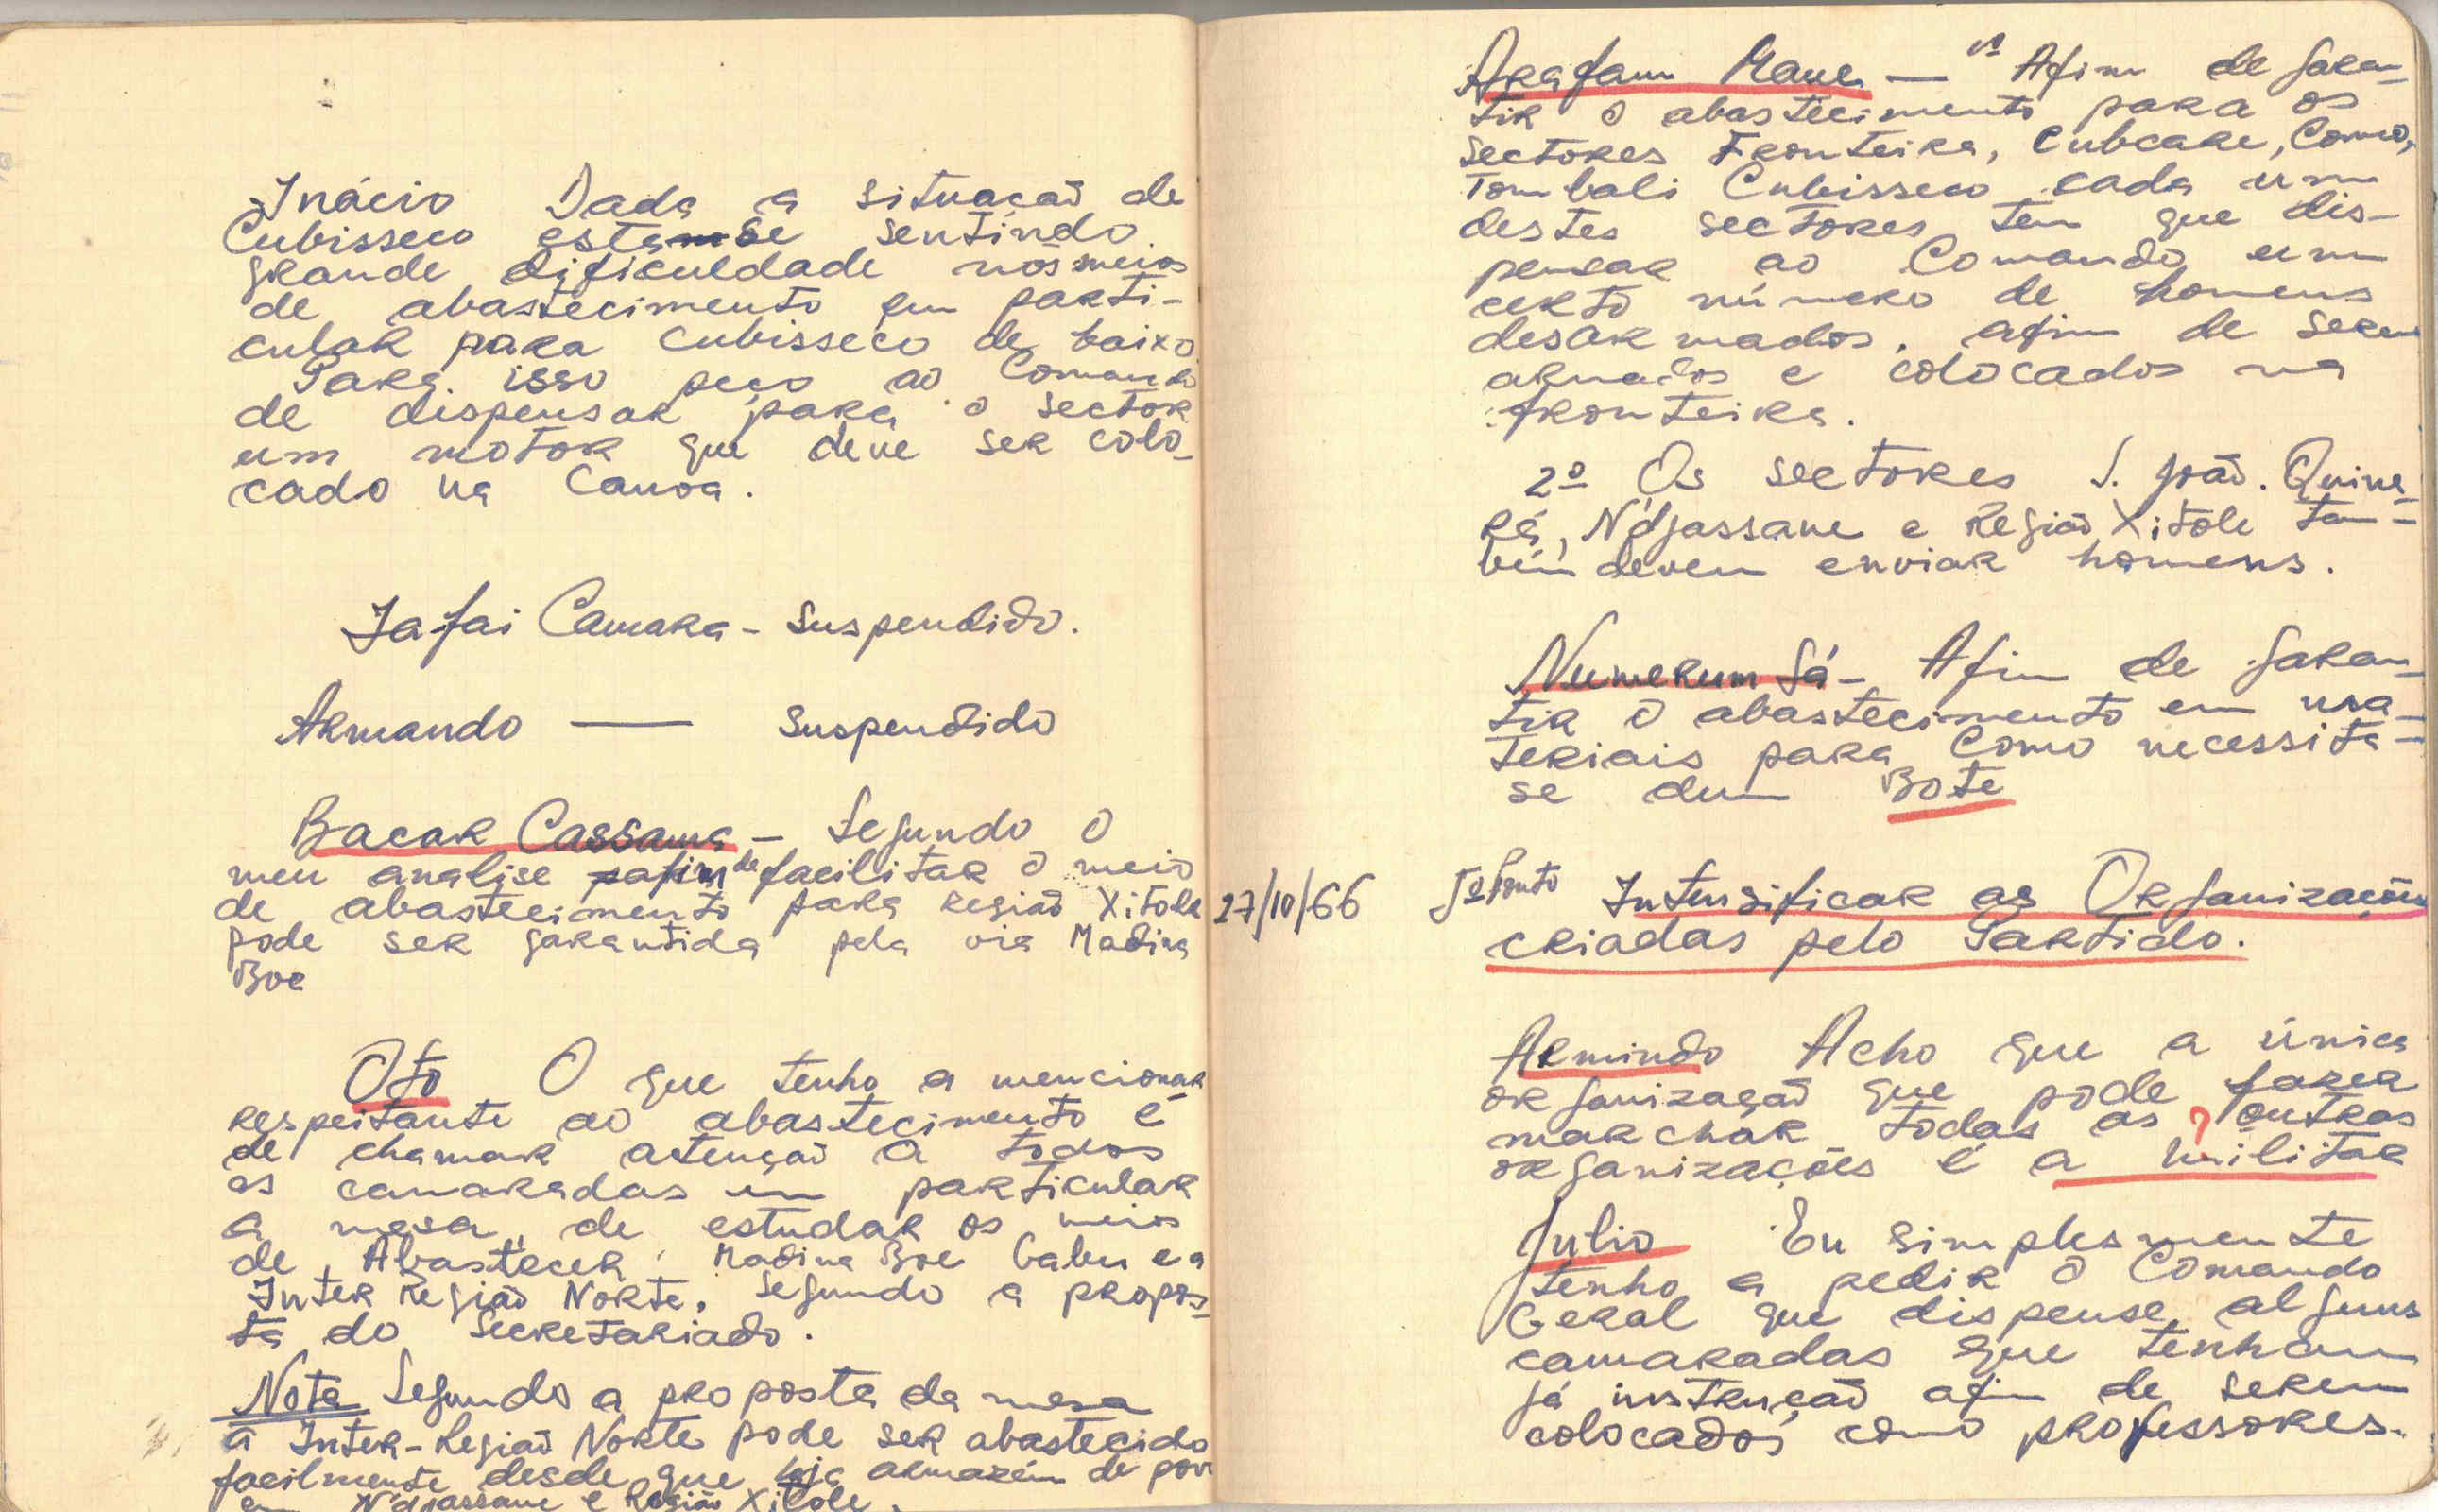 Inácio Dada a situação de
Cubisseco esta se sentindo
grande dificuldade nos meios
de abastecimento em parti-
cular para Cubisseco de baixo.
Para isso peço ao Comando
de dispensar para o sector
um motor que deve ser colo-
cado na Canoa.
Jafai Camara - Suspendido.
Armando — Suspendido
Bacar Cassama - Segundo o
meu analise afim de facilitar o meio
de abastecimento para região Xitole
pode ser garantida pela via Madina
Boe
Oto O que tenho a mencionar
respeitante ao abastecimento é
de chamar atenção a todos
os camaradas em particular
a mesa, de estudar os meios
de Abastecer Madina Boe Gabu e a
Inter Região Norte, Segundo a propos-
ta do Secretariado.
Nota Segundo a proposta da mesa
a Inter-Região Norte pode ser abastecido
facilmente desde que haja armazém de
em N'djassane e Região Xitole.
Arafam Mane — Afim de garan-
tir o abastecimento para os
sectores Fronteira, Cubcare, Como,
Tombali Cubisseco cada um
destes sectores tem que dis-
pensar ao Comando um
certo número de homens
desarmados, afim de serem
armados e colocados na
fronteira.
2º Os sectores S. João. Quina-
rá, N'djassane e Região Xitole tam-
bém devem enviar homens.
Numerum Gá - Afim de garan-
tir o abastecimento em ma-
teriais para Como necessita-
se dum Bote
27/10/66 Ponto Intensificar as Organizações
criadas pelo Partido.
Armindo Acho que a única
organização que pode fazer
marchar todas as ? outras
organizações é a militar
Julio Eu simplesmente
tenho a pedir o Comando
Geral que dispense alguns
camaradas que tenham
já instrução afim de serem
colocados como professores.